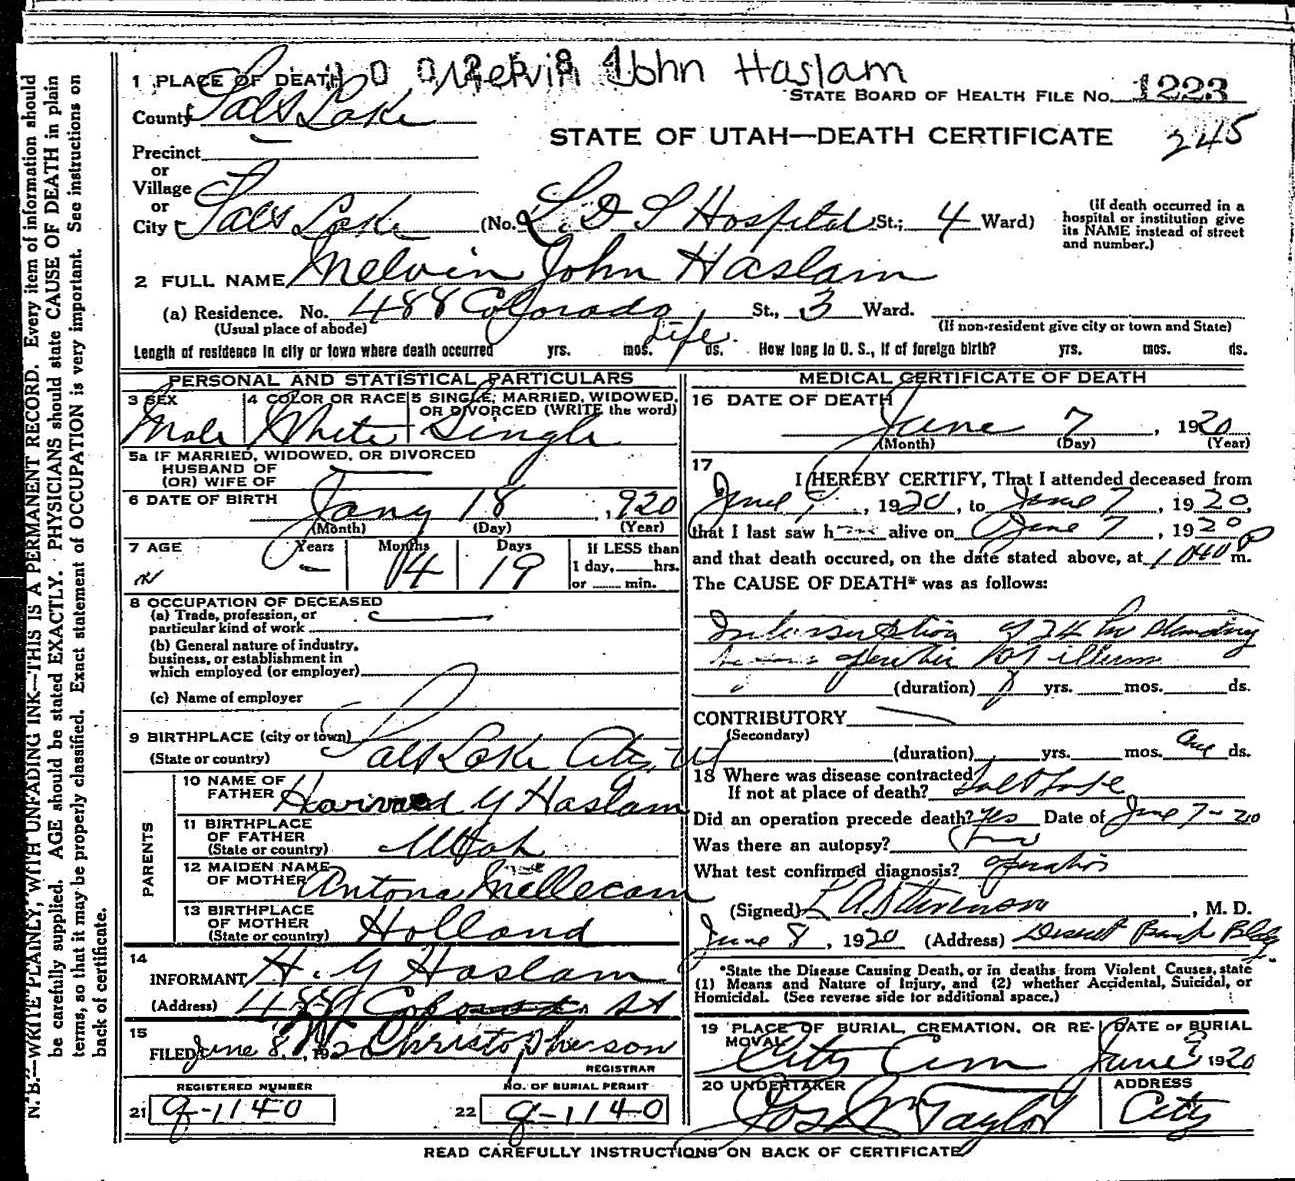 Melvin John Haslam
1 PLACE OF DEATH
STATE BOARD OF HEALTH FILE No. 1223
County Salt Lake
245
STATE OF UTAH—DEATH CERTIFICATE
Precinct
or
Village
or
City Salt Lake (No. L.D.S Hospital St.; 4 Ward)
(If death occurred in a
hospital or institution give
its NAME instead of street
and number.)
2 FULL NAME Melvin John Haslam
(a) Residence. No. 488 Colorado St., 3 Ward.
(Usual place of abode)
(If non-resident give city or town and State)
Length of residence in city or town where death occurred yrs. mos. Life. ds. How long in U. S., if of foreign birth? yrs. mos. ds.
PERSONAL AND STATISTICAL PARTICULARS
3 SEX
Male
4 COLOR OR RACE
White
5 SINGLE, MARRIED, WIDOWED,
OR DIVORCED (WRITE the word)
Single
5a IF MARRIED, WIDOWED, OR DIVORCED
HUSBAND OF
(OR) WIFE OF
6 DATE OF BIRTH Jany 18, 920
(Month) (Day) (Year)
7 AGE Years Months Days
4 19
If LESS than
1 day, hrs.
or min.
8 OCCUPATION OF DECEASED
(a) Trade, profession, or
particular kind of work
(b) General nature of industry,
business, or establishment in
which employed (or employer)
(c) Name of employer
9 BIRTHPLACE (city or town)
(State or country) Salt Lake City, Ut
PARENTS
10 NAME OF
FATHER Y Haslam
11 BIRTHPLACE
OF FATHER
(State or country) Utah
12 MAIDEN NAME
OF MOTHER Antona Mellecam
13 BIRTHPLACE
OF MOTHER
(State or country) Holland
14
INFORMANT H. Y Haslam
(Address) 488 St
15
FILED June 8, 192 Christopherson
REGISTRAR
REGISTERED NUMBER
21 q-1140
NO. OF BURIAL PERMIT
22 q-1140
MEDICAL CERTIFICATE OF DEATH
16 DATE OF DEATH
June 7, 1920
(Month) (Day) (Year)
17
I HEREBY CERTIFY, That I attended deceased from
June, 1920, to June 7, 1920,
that I last saw h alive on June 7, 1920
and that death occured, on the date stated above, at m.
The CAUSE OF DEATH* was as follows:
of 24 hr standing
(duration) yrs. mos. ds.
CONTRIBUTORY
(Secondary)
(duration) yrs. mos. One ds.
18 Where was disease contracted
If not at place of death? Salt Lake
Did an operation precede death? Yes Date of June 7-20
Was there an autopsy?
What test confirmed diagnosis? operation
(Signed) Stevenson, M. D.
June 8, 1920 (Address) Deseret Bank Bldg
*State the Disease Causing Death, or in deaths from Violent Causes, state
(1) Means and Nature of Injury, and (2) whether Accidental, Suicidal, or
Homicidal. (See reverse side for additional space.)
19 PLACE OF BURIAL, CREMATION, OR RE-
MOVAL City Cem
DATE OF BURIAL
June 9 1920
20 UNDERTAKER
Jos Wm Taylor
ADDRESS
City
READ CAREFULLY INSTRUCTIONS ON BACK OF CERTIFICATE
N. B.—WRITE PLAINLY, WITH UNFADING INK—THIS IS A PERMANENT RECORD. Every item of information should
be carefully supplied. AGE should be stated EXACTLY. PHYSICIANS should state CAUSE OF DEATH in plain
terms, so that it may be properly classified. Exact statement of OCCUPATION is very important. See instructions on
back of certificate.